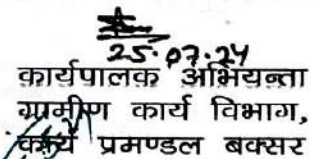 25.07.24
कार्यपालक अभियन्ता
ग्रामीण कार्य विभाग,
कार्य प्रमण्डल बक्सर